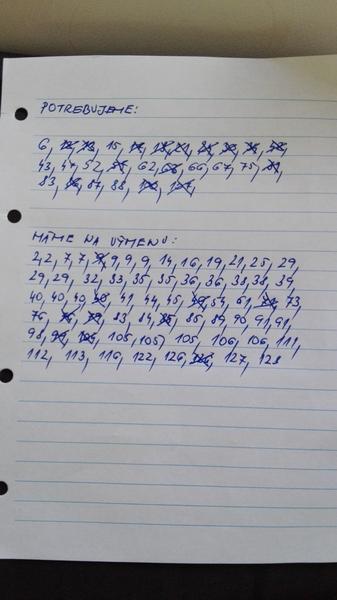 POTREBUJEME:
6, 15,
43, 47, 52, 62, 66, 67, 75,
83, 87, 88,
MÁME NA VÝMENU:
2, 2, 7, 7, 9, 9, 9, 14, 16, 19, 21, 25, 29,
29, 29, 32, 33, 35, 35, 36, 36, 38, 38, 39,
40, 40, 40, 41, 44, 45, 54, 61, 73,
76, 83, 84, 85, 89, 90, 91, 91,
98, 105, 105, 105, 106, 106, 111,
112, 113, 116, 122, 126, 127, 128